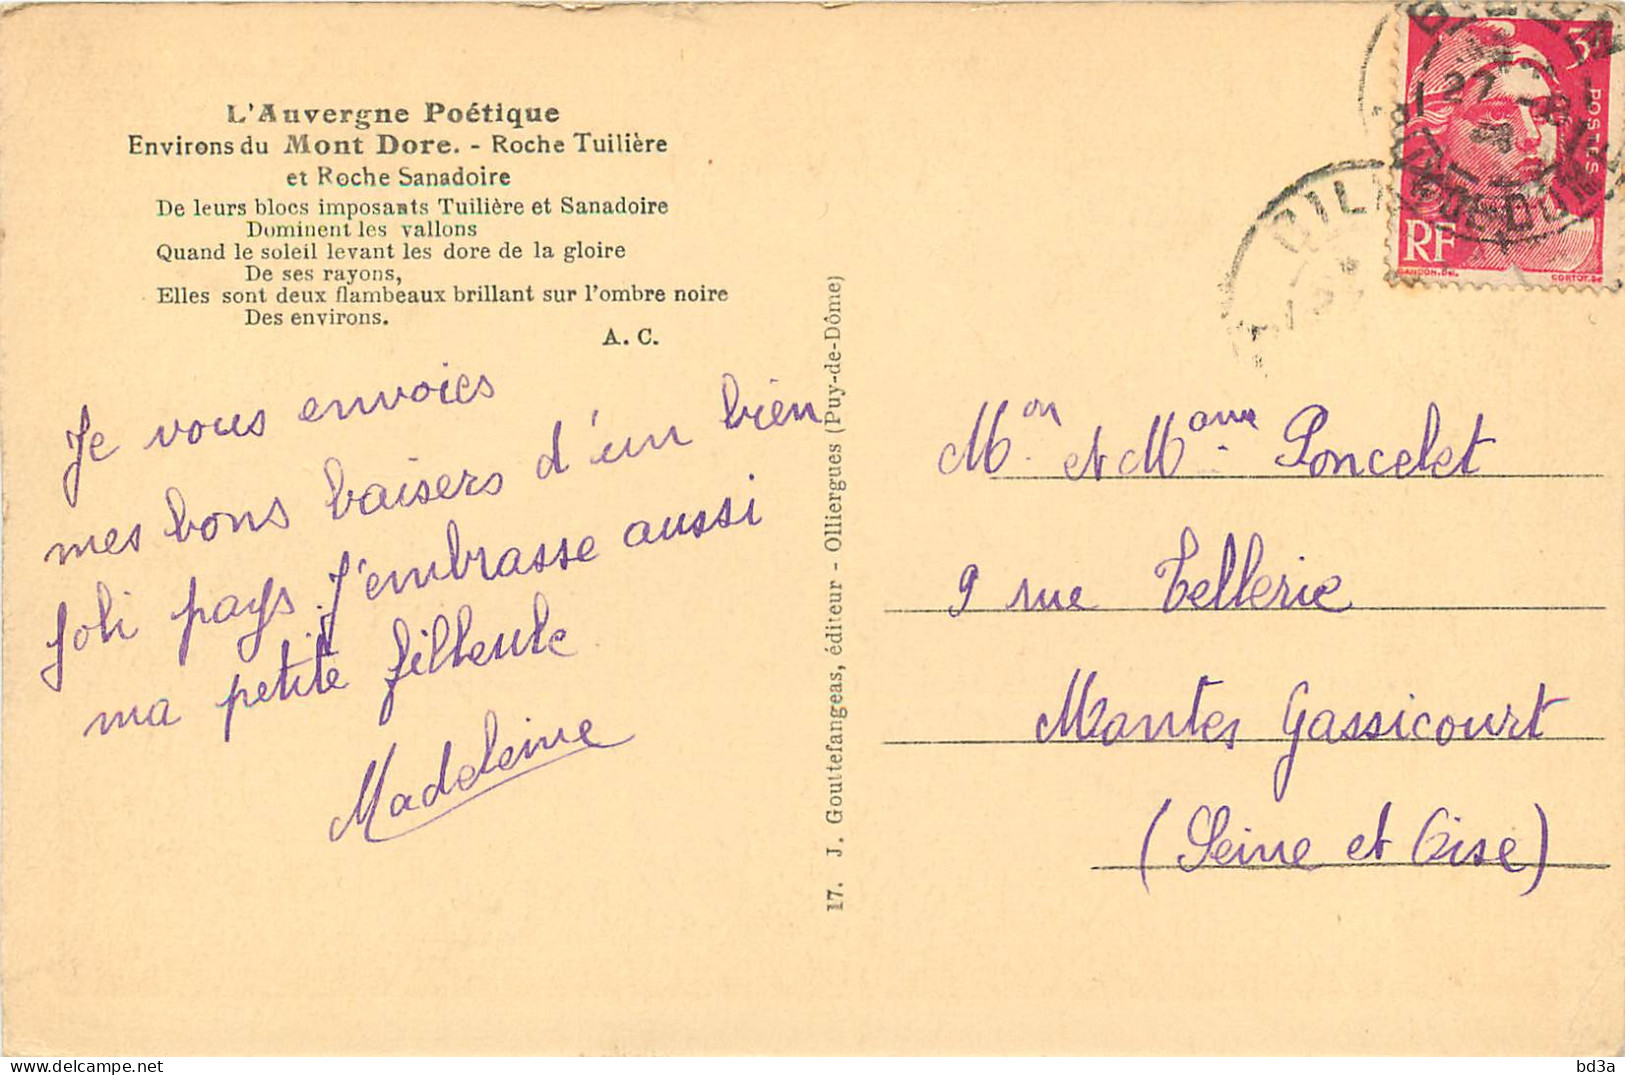 L'Auvergne Poétique
Environs du Mont Dore. - Roche Tuilière
et Roche Sanadoire
De leurs blocs imposants Tuilière et Sanadoire
Dominent les vallons
Quand le soleil levant les dore de la gloire
De ses rayons,
Elles sont deux flambeaux brillant sur l'ombre noire
Des environs.
A. C.
Je vous envoies
mes bons baisers d'un bien
joli pays. J'embrasse aussi
ma petite filleule
Madeleine
17. J. Gouttefangeas, éditeur - Olliergues (Puy-de-Dôme)
3F
POSTES
RF
GANDON.Del.
CORTOT.Sc
27 -8
Mon et Mame Poncelet
9 rue Tellerie
Mantes Gassicourt
(Seine et Oise)
bd3a